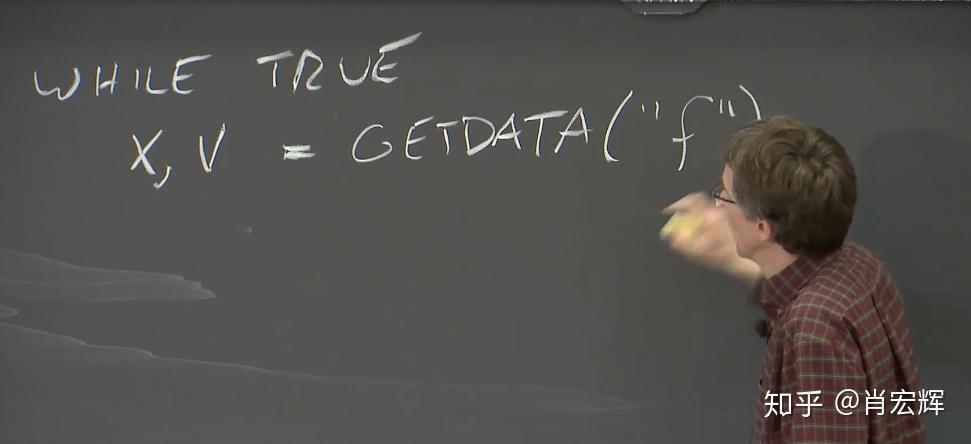 WHILE TRUE
X, V = GETDATA("f")
知乎 @肖宏辉